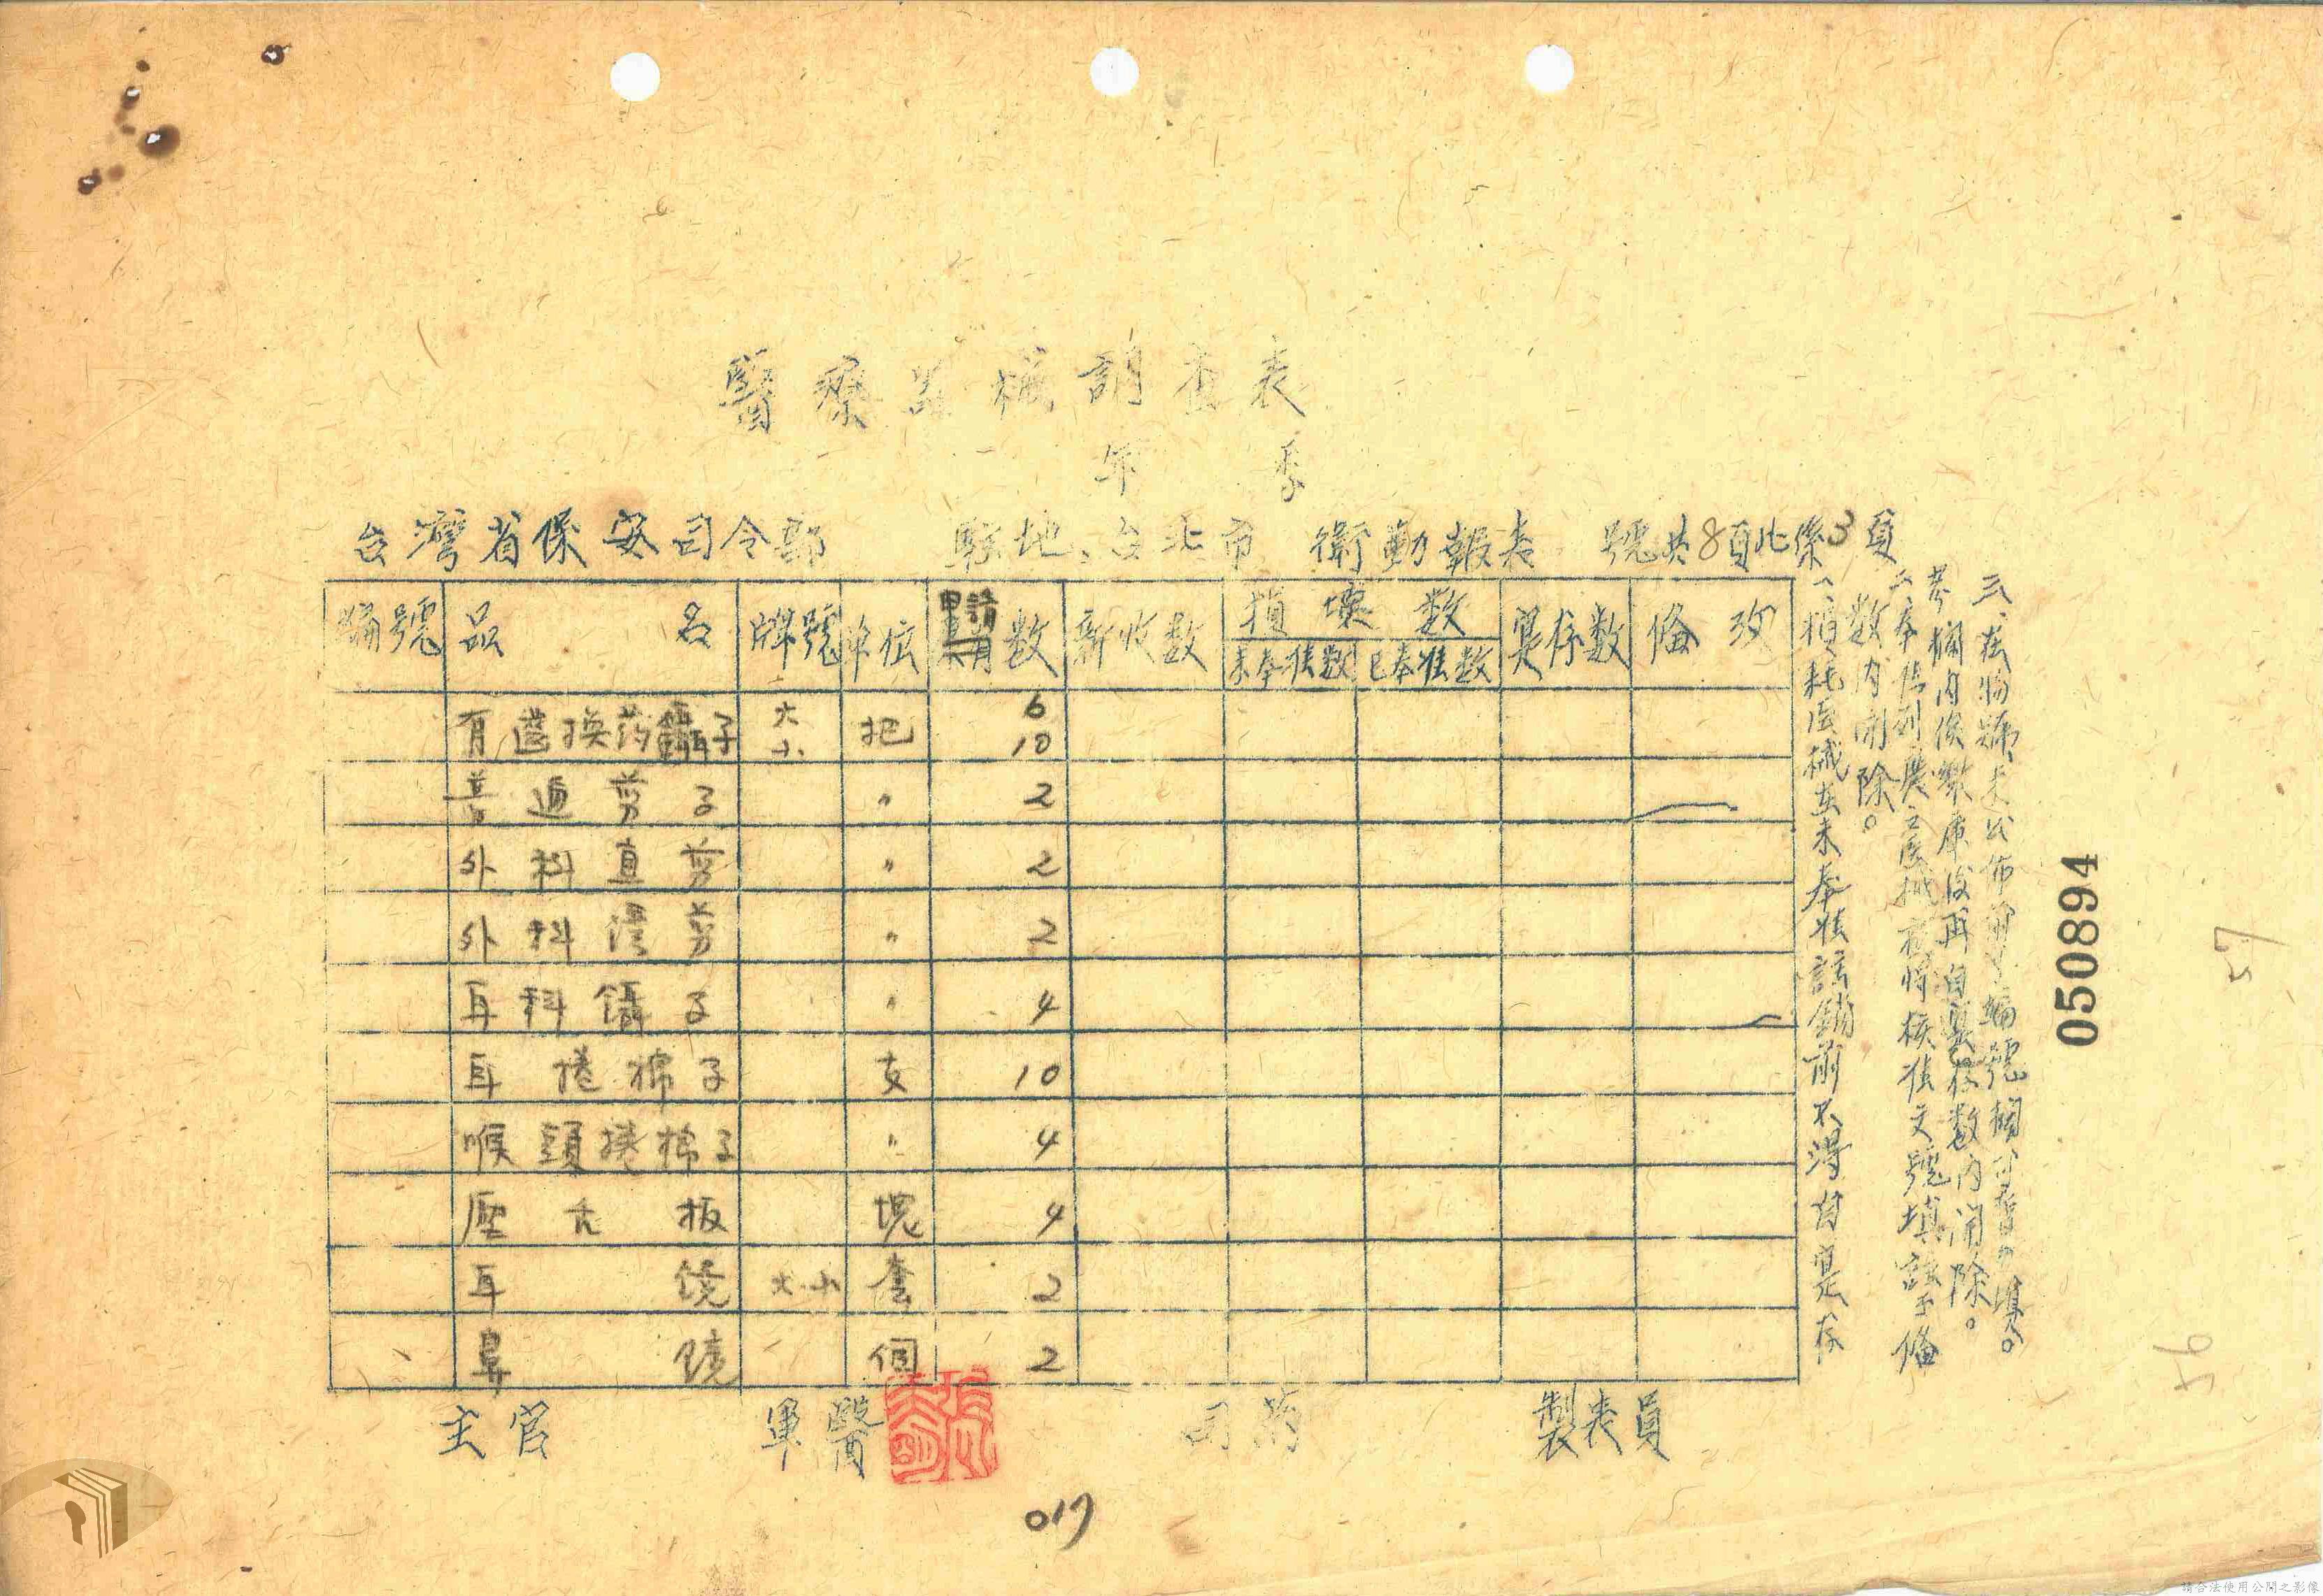 醫療器械調查表
年 季
台灣省保安司令部 駐地、台北市 衛勤報表 號共8頁此係3頁
編號 品名 牌號 單位 申請数 新收数 損壞数 未奉准数 已奉准数 實存数 備攷
有齒換药鑷子 大 小 把 6 10
普通剪子 〃 2
外科直剪 〃 2
外科灣剪 〃 2
耳科鑷子 〃 4
耳捲棉子 支 10
喉頭捲棉子 〃 4
壓舌板 塊 4
耳鏡 大小 套 2
鼻鏡 個 2
一、損耗医械在未奉准註銷前不得自實存
数内開除。
二、奉准列廢之医械 將核准文號填註于備
考欄内俟繳庫後再自實存数内開除。
三、在物號未公佈前編號欄可暫勿填。
主官 軍醫 司药 製表員
017
050894
57
56
請合法使用公開之影像